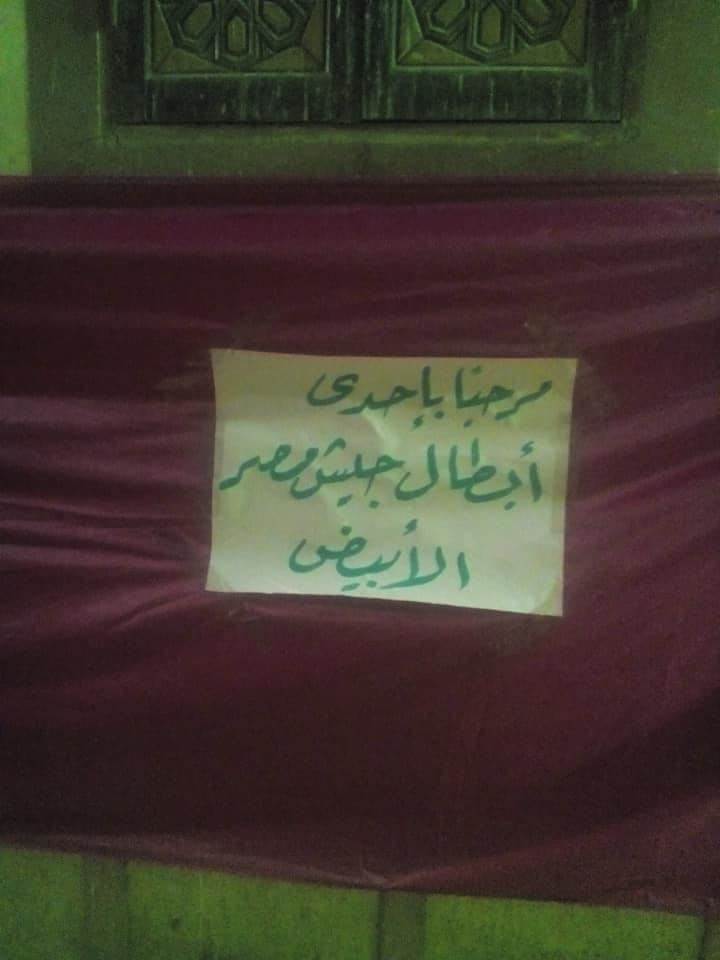 مرحبا بإحدى
أبطال جيش مصر
الأبيض